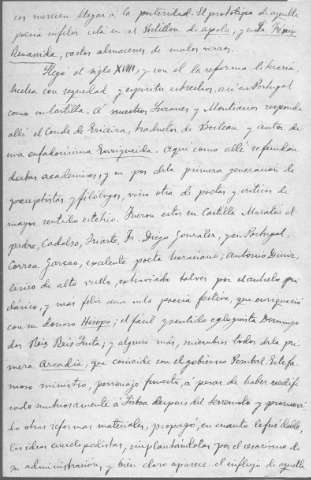 ces merecen llegar á la posteridad. El prototipo de aquella
poesía infeliz está en el Postillon de Apolo, y en la Fenix
Renascida, vastos almacenes de malos versos.
Llegó el siglo XVIII, y con él la reforma literaria,
hecha con sequedad y espíritu estrechos, así en Portugal
como en Castilla. A nuestros Luzanes y Montianos responde
allí el Conde de Ericeira, traductor de Boileau y autor de
una enfadosísima Henriqueida. Aquí como allí se fundan
doctas academias, y en pos de la primera generacion de
preceptistas y filólogos, viene otra de poetas y críticos de
mayor sentido estético. Fueron estos en Castilla Moratin el
padre, Cadalso, Iriarte, Fr. Diego Gonzalez, y en Portugal,
Correa Garçao, excelente poeta horaciano; Antonio Diniz,
lírico de alto vuelo, extraviado talvez por el anhelo pin-
dárico, y mas feliz en la poesía festiva, que enriqueció
con su famoso Hisope; el fácil y sentido eglogista Domingo
dos Reis Quita; y algunos más, miembros todos de la pri-
mera Arcadia, que coincide con el gobierno Pombal. Este fa-
moso ministro, personaje funesto, á pesar de haber reedifi-
cado suntuosamente á Lisboa despues del terremoto y promovi-
do otras reformas materiales, propagó, en cuanto le fué dado,
las ideas enciclopedistas, implantándolas por el cesarismo de
su administracion, y bien claro aparece el influjo de aquella